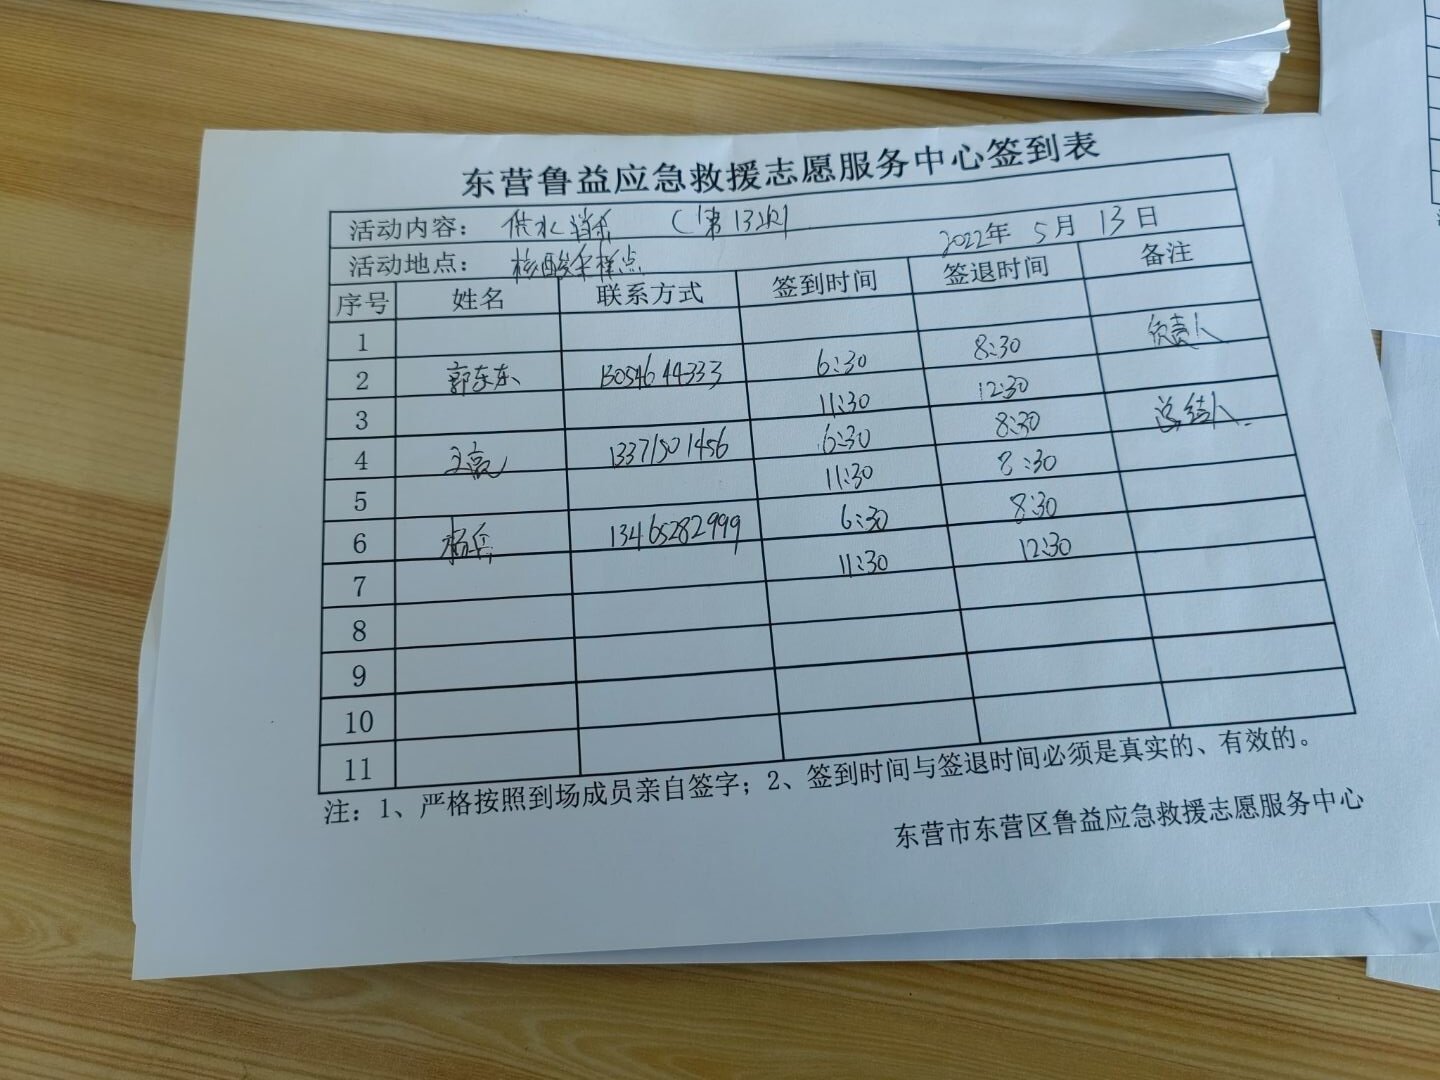 东营鲁益应急救援志愿服务中心签到表
活动内容： 供水消杀 （第13次）
活动地点： 核酸采样点 2022年 5月 13日
序号 姓名 联系方式 签到时间 签退时间 备注
1
2 郭东东 13054644333 6:30 8:30 负责人
3 11:30 12:30
4 王亮 13371501456 6:30 8:30 总结人
5 11:30 8:30
6 杨兵 13465282999 6:30 8:30
7 11:30 12:30
8
9
10
11
注：1、严格按照到场成员亲自签字；2、签到时间与签退时间必须是真实的、有效的。
东营市东营区鲁益应急救援志愿服务中心